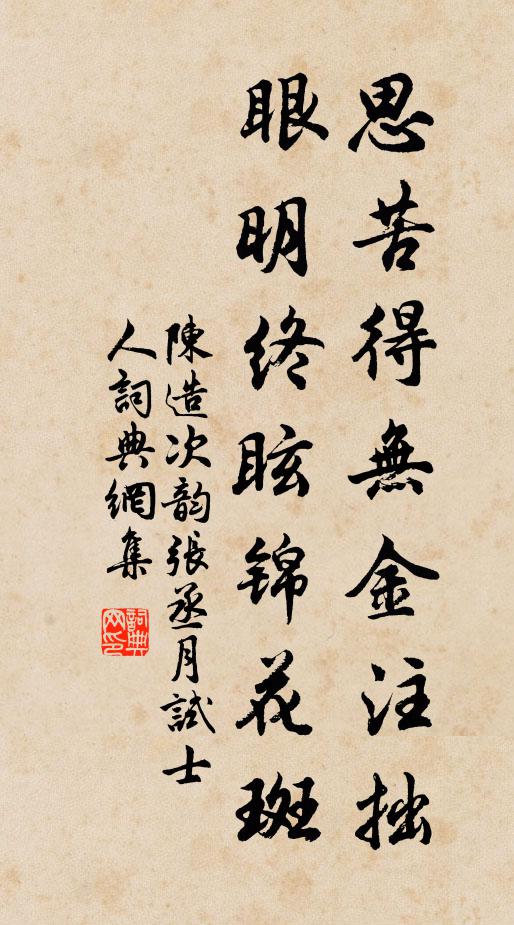 思苦得無金注拙
眼明終眩錦花斑
陳造次韵張丞月試士
人詞典網集
詞典网印